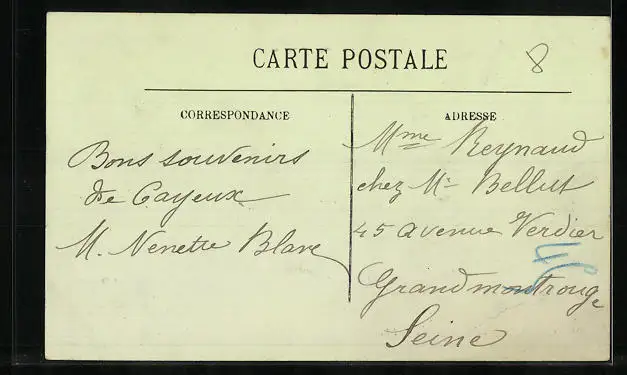 CARTE POSTALE
8
CORRESPONDANCE
Bons souvenirs
de Cayeux
M. Nenette Blanc
ADRESSE
Mme Reynaud
chez Mr Bellut
45 avenue Verdier
Grandmontrouge
Seine